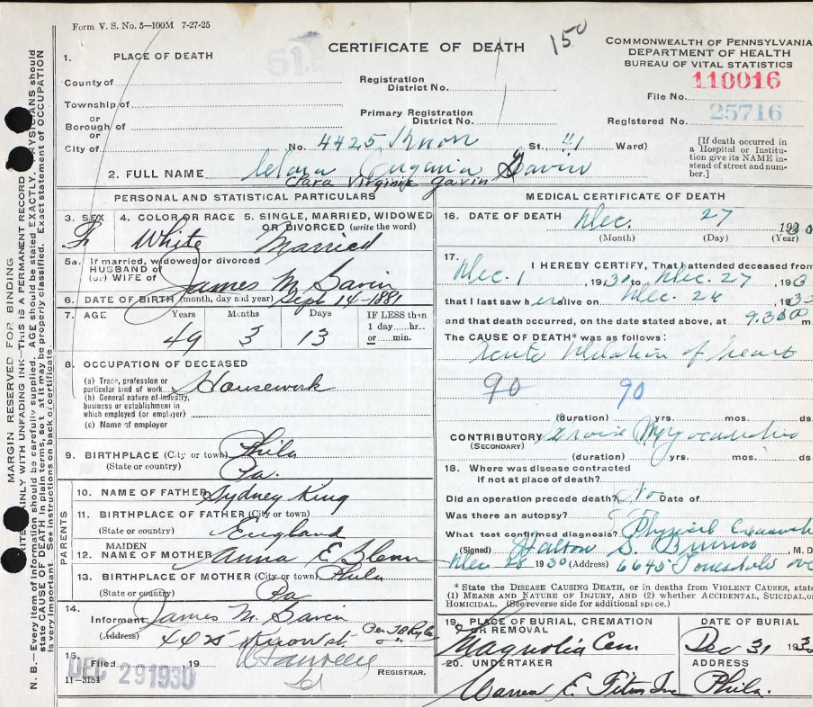 Form V. S. No. 5—100M 7-27-25
CERTIFICATE OF DEATH
150
COMMONWEALTH OF PENNSYLVANIA
DEPARTMENT OF HEALTH
BUREAU OF VITAL STATISTICS
1. PLACE OF DEATH
County of
Registration District No.
File No. 110016
Township of
or
Borough of
Primary Registration District No.
Registered No. 25716
or
City of
No. 4425 St., 41 Ward)
[If death occurred in a Hospital or Institution give its NAME instead of street and number.]
2. FULL NAME Virginia Gavin
PERSONAL AND STATISTICAL PARTICULARS
3. SEX F
4. COLOR OR RACE White
5. SINGLE, MARRIED, WIDOWED OR DIVORCED (write the word) Married
5a. If married, widowed or divorced
HUSBAND of
(or) WIFE of James M. Gavin
6. DATE OF BIRTH (month, day and year) Sept 14-1881
7. AGE Years Months Days IF LESS than
1 day.....hr..
or.....min.
49 3 13
8. OCCUPATION OF DECEASED
(a) Trade, profession or particular kind of work Housework
(b) General nature of industry, business or establishment in which employed (or employer)
(c) Name of employer
9. BIRTHPLACE (City or town) Phila
(State or country) Pa.
PARENTS
10. NAME OF FATHER Sydney King
11. BIRTHPLACE OF FATHER (City or town)
(State or country) England
12. MAIDEN NAME OF MOTHER Anna E.
13. BIRTHPLACE OF MOTHER (City or town) Phila
(State or country) Pa
14. Informant James M. Gavin
(Address) 4425
15. Filed DEC 29 1930 19
REGISTRAR.
11-3184
MEDICAL CERTIFICATE OF DEATH
16. DATE OF DEATH Dec. 27 1930
(Month) (Day) (Year)
17. I HEREBY CERTIFY, That I attended deceased from
Dec. 1, 1930 to Dec. 27, 193
that I last saw her alive on Dec. 26, 193
and that death occurred, on the date stated above, at 9.30
The CAUSE OF DEATH* was as follows:
Acute Dilation of heart
90 90
(duration) yrs. mos. ds
CONTRIBUTORY Myocarditis
(SECONDARY)
(duration) yrs. mos. ds
18. Where was disease contracted
if not at place of death?
Did an operation precede death? No Date of
Was there an autopsy?
What test confirmed diagnosis? Physical
(Signed) S. M. D.
Dec 28 1930 (Address) 6645
* State the DISEASE CAUSING DEATH, or in deaths from VIOLENT CAUSES, state
(1) MEANS AND NATURE OF INJURY, and (2) whether ACCIDENTAL, SUICIDAL, or
HOMICIDAL. (See reverse side for additional space.)
19. PLACE OF BURIAL, CREMATION OR REMOVAL
Magnolia Cem
DATE OF BURIAL
Dec 31 193
20. UNDERTAKER
Warren E. Titus Inc
ADDRESS
Phila.
MARGIN RESERVED FOR BINDING
PLAINLY WITH UNFADING INK—THIS IS A PERMANENT RECORD
N. B.—Every item of information should be carefully supplied. AGE should be stated EXACTLY. PHYSICIANS should
state CAUSE OF DEATH in plain terms, so that it may be properly classified. Exact statement of OCCUPATION
is very important. See instructions on back of certificate.